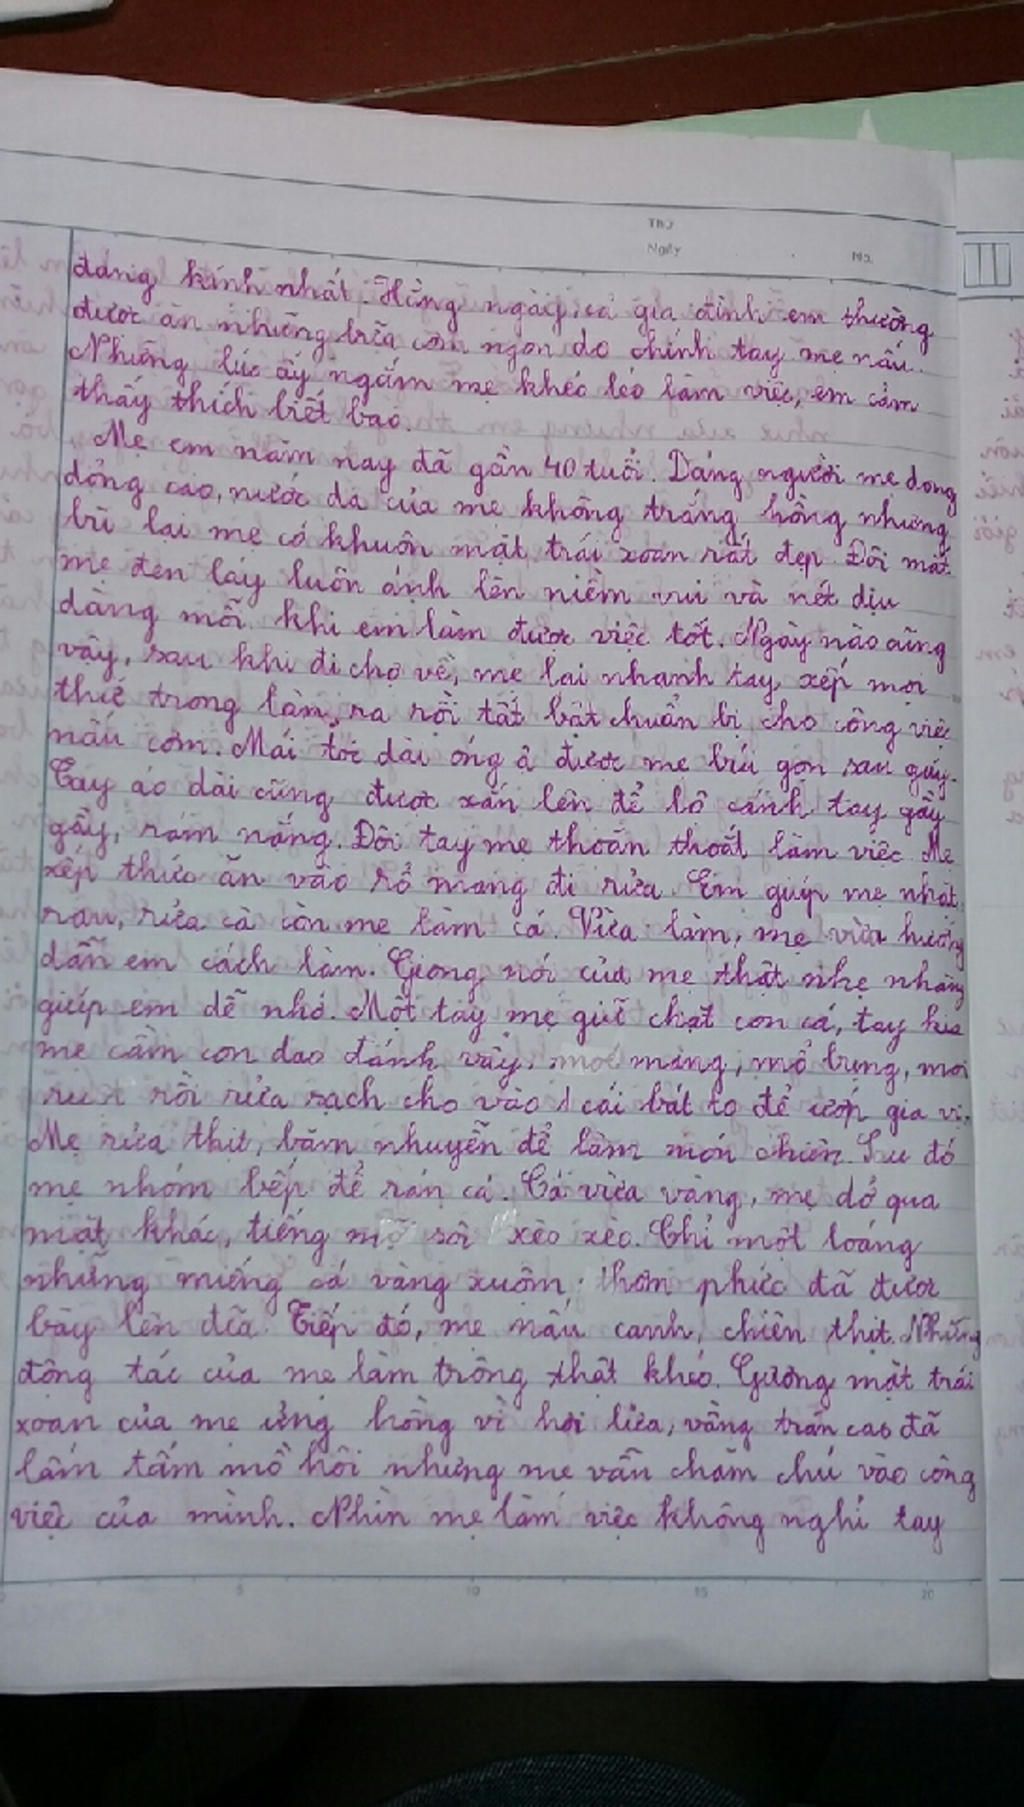 Thứ
Ngày No.
đáng kính nhất. Hằng ngày, cả gia đình em thường
được ăn những bữa cơm ngon do chính tay mẹ nấu.
Những lúc ấy ngắm mẹ khéo léo làm việc, em cảm
thấy thích biết bao.
Mẹ em năm nay đã gần 40 tuổi. Dáng người mẹ dong
dỏng cao, nước da của mẹ không trắng hồng nhưng
bù lại mẹ có khuôn mặt trái xoan rất đẹp. Đôi mắt
mẹ đen láy luôn ánh lên niềm vui và nét dịu
dàng mỗi khi em làm được việc tốt. Ngày nào cũng
vậy, sau khi đi chợ về, mẹ lại nhanh tay xếp mọi
thứ trong làn ra rồi tất bật chuẩn bị cho công việc
nấu cơm. Mái tóc dài óng ả được mẹ búi gọn sau gáy.
Tay áo dài cũng được xắn lên để lộ cánh tay gầy
gầy, rám nắng. Đôi tay mẹ thoăn thoắt làm việc. Mẹ
xếp thức ăn vào rổ mang đi rửa. Em giúp mẹ nhặt
rau, rửa cà còn mẹ làm cá. Vừa làm, mẹ vừa hướng
dẫn em cách làm. Giọng nói của mẹ thật nhẹ nhàng
giúp em dễ nhớ. Một tay mẹ giữ chặt con cá, tay kia
mẹ cầm con dao đánh vảy, moi mang, mổ bụng, moi
ruột rồi rửa sạch cho vào 1 cái bát to để ướp gia vị.
Mẹ rửa thịt, băm nhuyễn để làm món chiên. Sau đó
mẹ nhóm bếp để rán cá. Cá vừa vàng, mẹ dở qua
mặt khác, tiếng mỡ sôi xèo xèo. Chỉ một loáng
những miếng cá vàng xuộm, thơm phức đã được
bày lên đĩa. Tiếp đó, mẹ nấu canh, chiên thịt. Những
động tác của mẹ làm trông thật khéo. Gương mặt trái
xoan của mẹ ửng hồng vì hơi lửa, vầng trán cao đã
lấm tấm mồ hôi nhưng mẹ vẫn chăm chú vào công
việc của mình. Nhìn mẹ làm việc không nghỉ tay
5 10 15 20